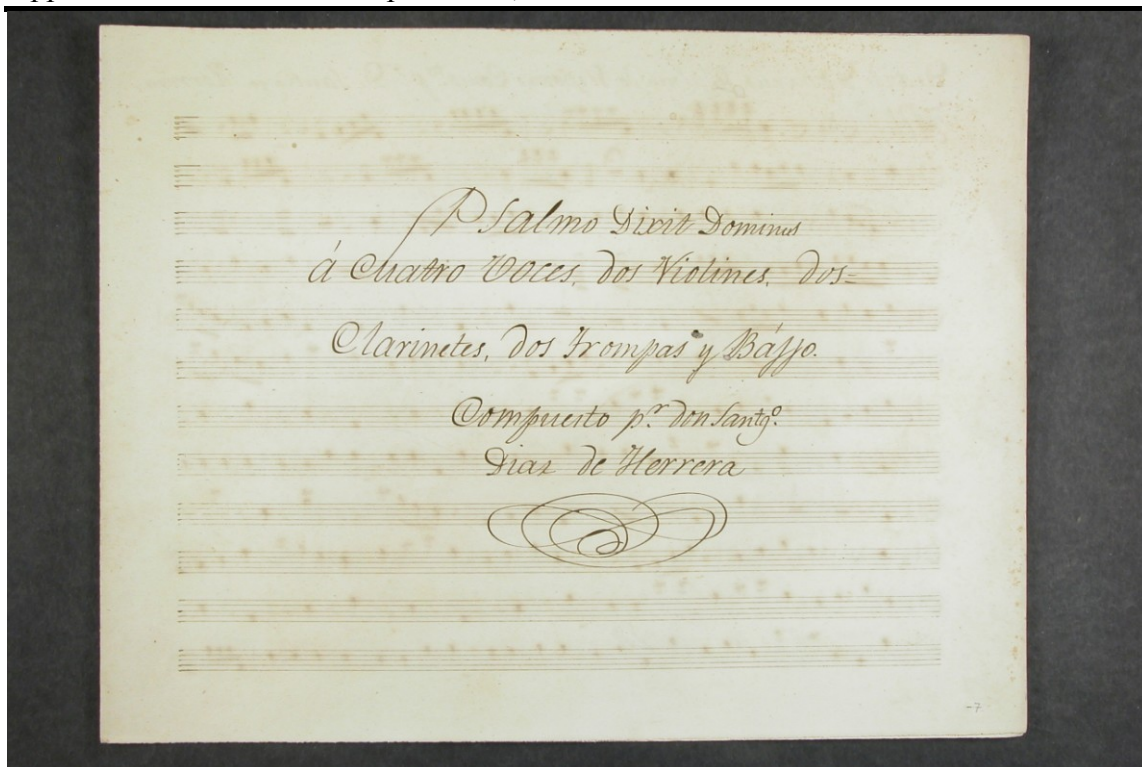 Psalmo Dixit Dominus
á Cuatro Voces, dos Violines, dos-
Clarinetes, dos Trompas y Bájjo.
Compuesto p.r don Santg.o
Diaz de Herrera
-7